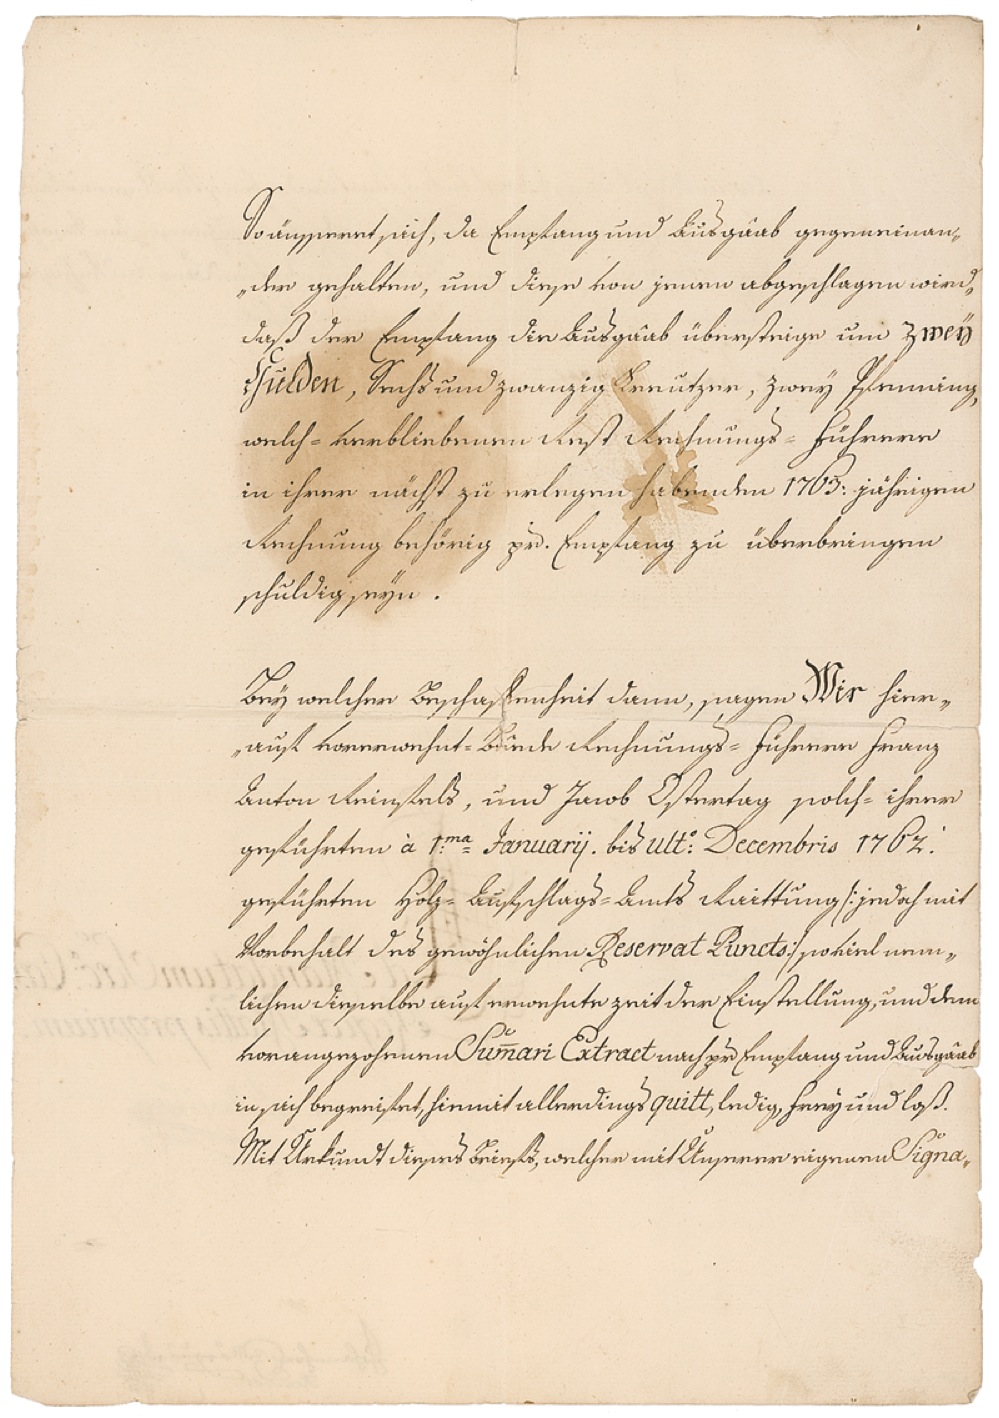 So äusseret sich, da Empfang und Ausgaab gegeneinan„
„der gehalten, und diese von jenen abgeschlagen wird,
daß der Empfang die Ausgaab übersteige um Zweÿ
Gulden, Sechs und zwanzig Kreutzer, zweÿ Pfenning,
welch= verbliebenen Rest Rechnungs= Führere
in ihrer nächst zu erlegen habenden 1763: jährigen
Rechnung behörig pr. Empfang zu überbringen
schuldig seÿn .
Beÿ welcher Beschaffenheit dann, sagen Wir hier„
„auf vorerwehnt= Beede Rechnungs= Führere Franz
Anton Reinfels, und Jacob Ostertag solch= ihrer
geführten à 1:ma Januarij. bis ult:o Decembris 1762:
geführten Holz= Aufschlags= Amts Raittung /: jedoch mit
Vorbehalt des gewöhnlichen Reservat Puncts :/ so viel nem„
lichen dieselbe auf erwehnte zeit der Einstellung, und dem
vorangezohenen Sum̅ari Extract nach pr Empfang und Ausgaab
in sich begreiffet, hiemit allerdings quitt, ledig, freÿ und loß.
Mit Urkundt dieses Briefs, welcher mit Unserer eigenen Signa„